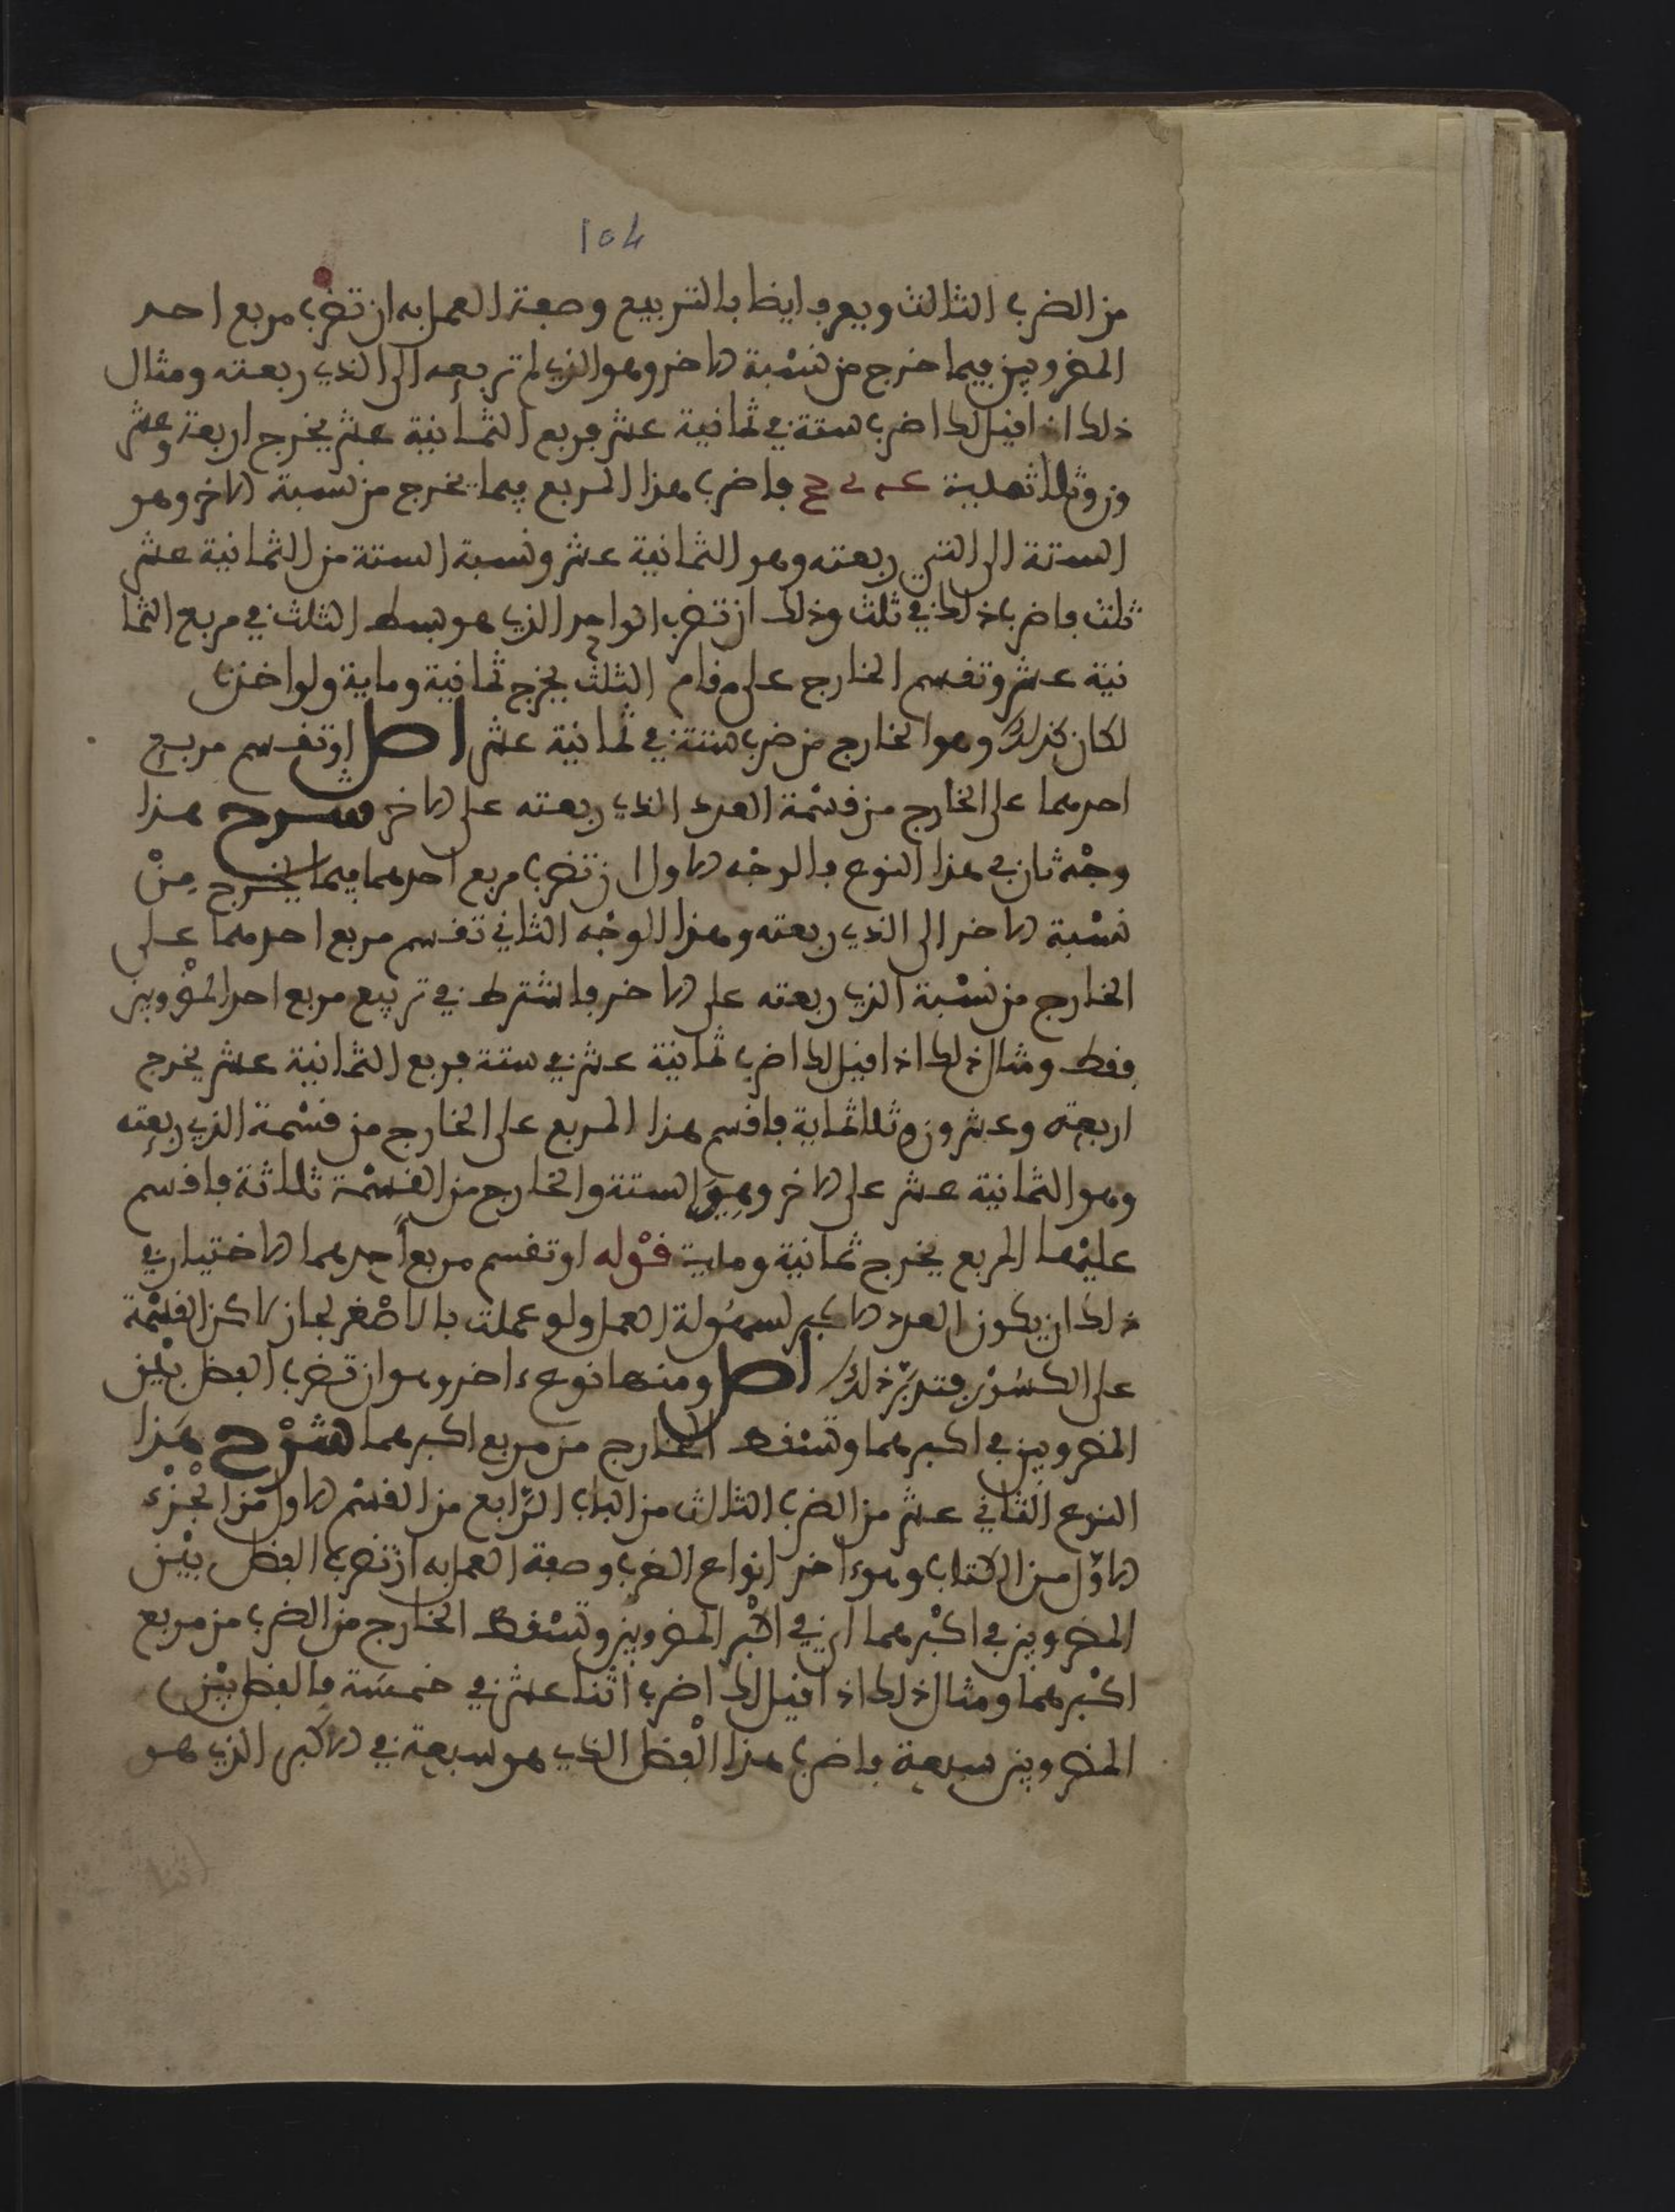 104
من الضرب الثالث ويعرف ايضا بالتربيع وصفة العمل به ان تضرب مربع احد
المضروبين فيما خرج من نسبة الاخر وهو الذي لم تربعه الى الذي ربعته ومثال
ذلك اذا قيل لك اضرب ستة في ثمانية عشر فربع الثمانية عشر يخرج اربعة وعشر
ون وثلاثماية فاضرب هذا المربع فيما يخرج من نسبة الاخر وهو
الستة الى التي ربعته وهو الثمانية عشر ونسبة الستة من الثمانية عشر
ثلث فاضرب ذلك في ثلث وذلك ان تضرب الواحد الذي هو بسط الثلث في مربع الثما
نية عشر وتقسم الخارج على مقام الثلث يخرج ثمانية وماية ولو اخذت
لكان كذلك وهو الخارج من ضرب ستة في ثمانية عشر اصل او تقسم مربع
احدهما على الخارج من قسمة العدد الذي ربعته على الاخر شرح هذا
وجه ثان في هذا النوع فالوجه الاول ان تضرب مربع احدهما فيما يخرج من
نسبة الاخر الى الذي ربعته وهذا الوجه الثاني تقسم مربع احدهما على
الخارج من نسبة الذي ربعته على الاخر فاشترط في تربيع مربع احد المضروبين
فقط ومثال ذلك اذا قيل لك اضرب ثمانية عشر في ستة فربع الثمانية عشر يخرج
اربعة وعشرون وثلاثماية فاقسم هذا المربع على الخارج من قسمة الذي ربعته
وهو الثمانية عشر على الاخر وهو الستة والخارج من القسمة ثلاثة فاقسم
عليها المربع يخرج ثمانية وماية قوله او تقسم مربع احدهما الاختيار في
ذلك ان يكون العدد الاكبر لسهولة العمل ولو عملت بالاصغر لجاز لاكن القسمة
على الكسور فتدبر ذلك اصل ومنها نوع ءاخر وهو ان تضرب الفضل بين
المضروبين في اكبرهما وتسقط الخارج من مربع اكبرهما شرح هذا
النوع الثاني عشر من الضرب الثالث من الباب الرابع من القسم الاول من الجزء
الاول من الكتاب وهو ءاخر انواع الضرب وصفة العمل به ان تضرب الفضل بين
المضروبين في اكبرهما اي في اكبر المضروبين وتسقط الخارج من الضرب من مربع
اكبرهما ومثال ذلك اذا قيل لك اضرب اثنا عشر في خمسة فالفضل بين
المضروبين سبعة فاضرب هذا الفضل الذي هو سبعة في الاكبر الذي هو
اثنا